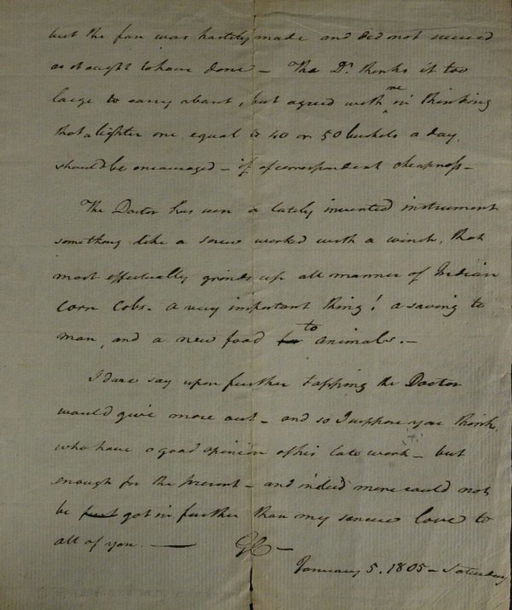 but the fan was hastily made and did not succeed
as it ought to have done – The Dr. thinks it too
large to carry about, but agreed with me in thinking
that a lighter one equal to 40 or 50 bushels a day,
should be encouraged – if of correspondent cheapness –
The Doctor has seen a lately invented instrument
something like a screw worked with a winch, that
most effectually grinds up all manner of Indian
Corn Cobs. A very important thing! a saving to
man, and a new food to animals. –
I dare say upon further tapping the Doctor
would give more out – and so I suppose you think,
who have a good opinion of his late work – but
enough for the present – and indeed more could not
be got in further than my sincere love to
all of you. —
January 5. 1805 – Saturday